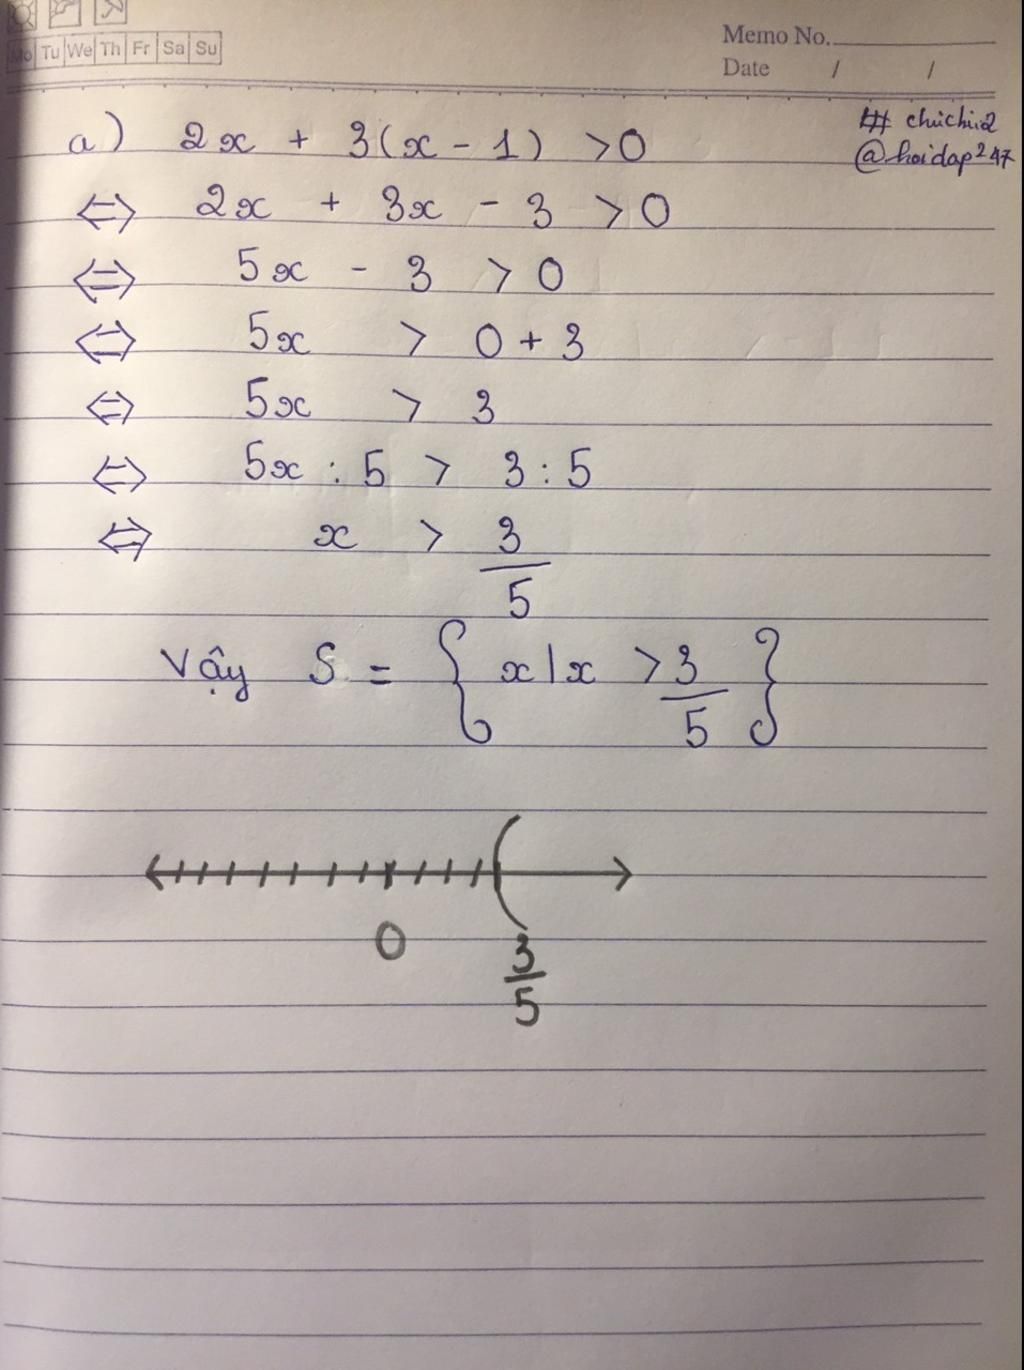 Mo Tu We Th Fr Sa Su
Memo No.
Date / /
## chichii2
@hoidap247
a) 2x + 3(x - 1) > 0
⇔ 2x + 3x - 3 > 0
⇔ 5x - 3 > 0
⇔ 5x > 0 + 3
⇔ 5x > 3
⇔ 5x : 5 > 3 : 5
⇔ x > 3/5
Vậy S = { x | x > 3/5 }
0 3/5